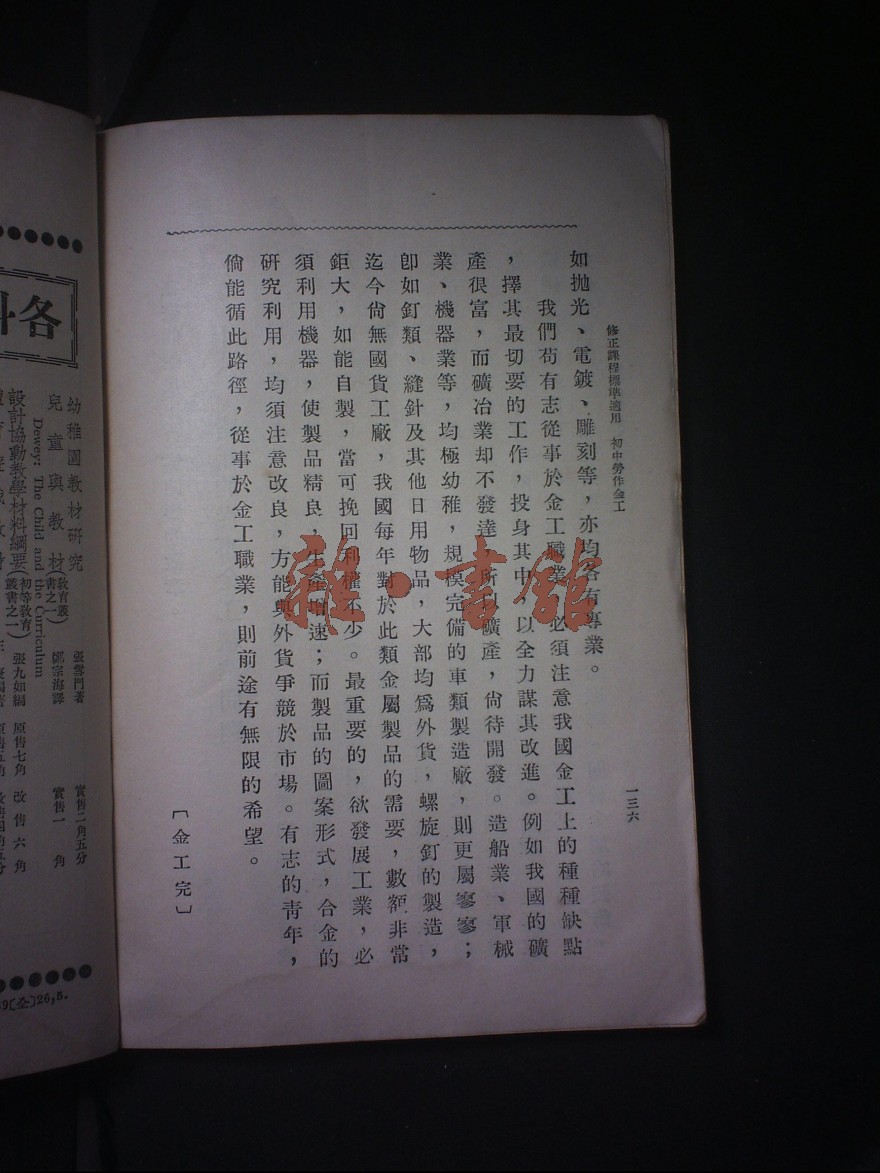 修正課程標準適用 初中勞作金工
一三六
如拋光、電鍍、雕刻等，亦均各有專業。
我們苟有志從事於金工職業，必須注意我國金工上的種種缺點
，擇其最切要的工作，投身其中，以全力謀其改進。例如我國的礦
產很富，而礦冶業却不發達，所以礦產，尙待開發。造船業、軍械
業、機器業等，均極幼稚，規模完備的車類製造廠，則更屬寥寥；
卽如釘類、縫針及其他日用物品，大部均爲外貨，螺旋釘的製造，
迄今尙無國貨工廠，我國每年對於此類金屬製品的需要，數額非常
鉅大，如能自製，當可挽回利權不少。最重要的，欲發展工業，必
須利用機器，使製品精良，生產增速；而製品的圖案形式，合金的
研究利用，均須注意改良，方能與外貨爭競於市場。有志的靑年，
倘能循此路徑，從事於金工職業，則前途有無限的希望。
〔金工完〕
雜·書館
各科
幼稚園教材研究 張雪門著 實售二角五分
兒童與教材（教育叢書之一） 鄭宗海譯 實售一角
Dewey: The Child and the Curriculum
設計協動教學材料綱要（初等教育叢書之一） 張九如編 原售七角 改售六角
9〔仝〕26,5.